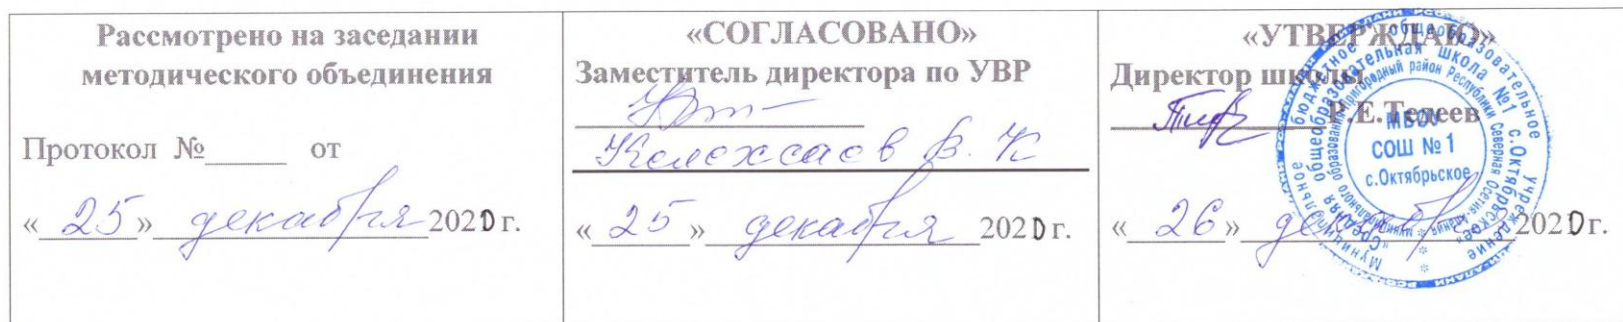 Рассмотрено на заседании
методического объединения
Протокол №______ от
« 25 » декабря 2020 г.
«СОГЛАСОВАНО»
Заместитель директора по УВР
Келехсаев В. К
« 25 » декабря 2020 г.
«УТВЕРЖДАЮ»
Директор школы
Р.Е.Тедеев
« 26 » декабря 2020 г.
МБОУ
СОШ № 1
с.Октябрьское